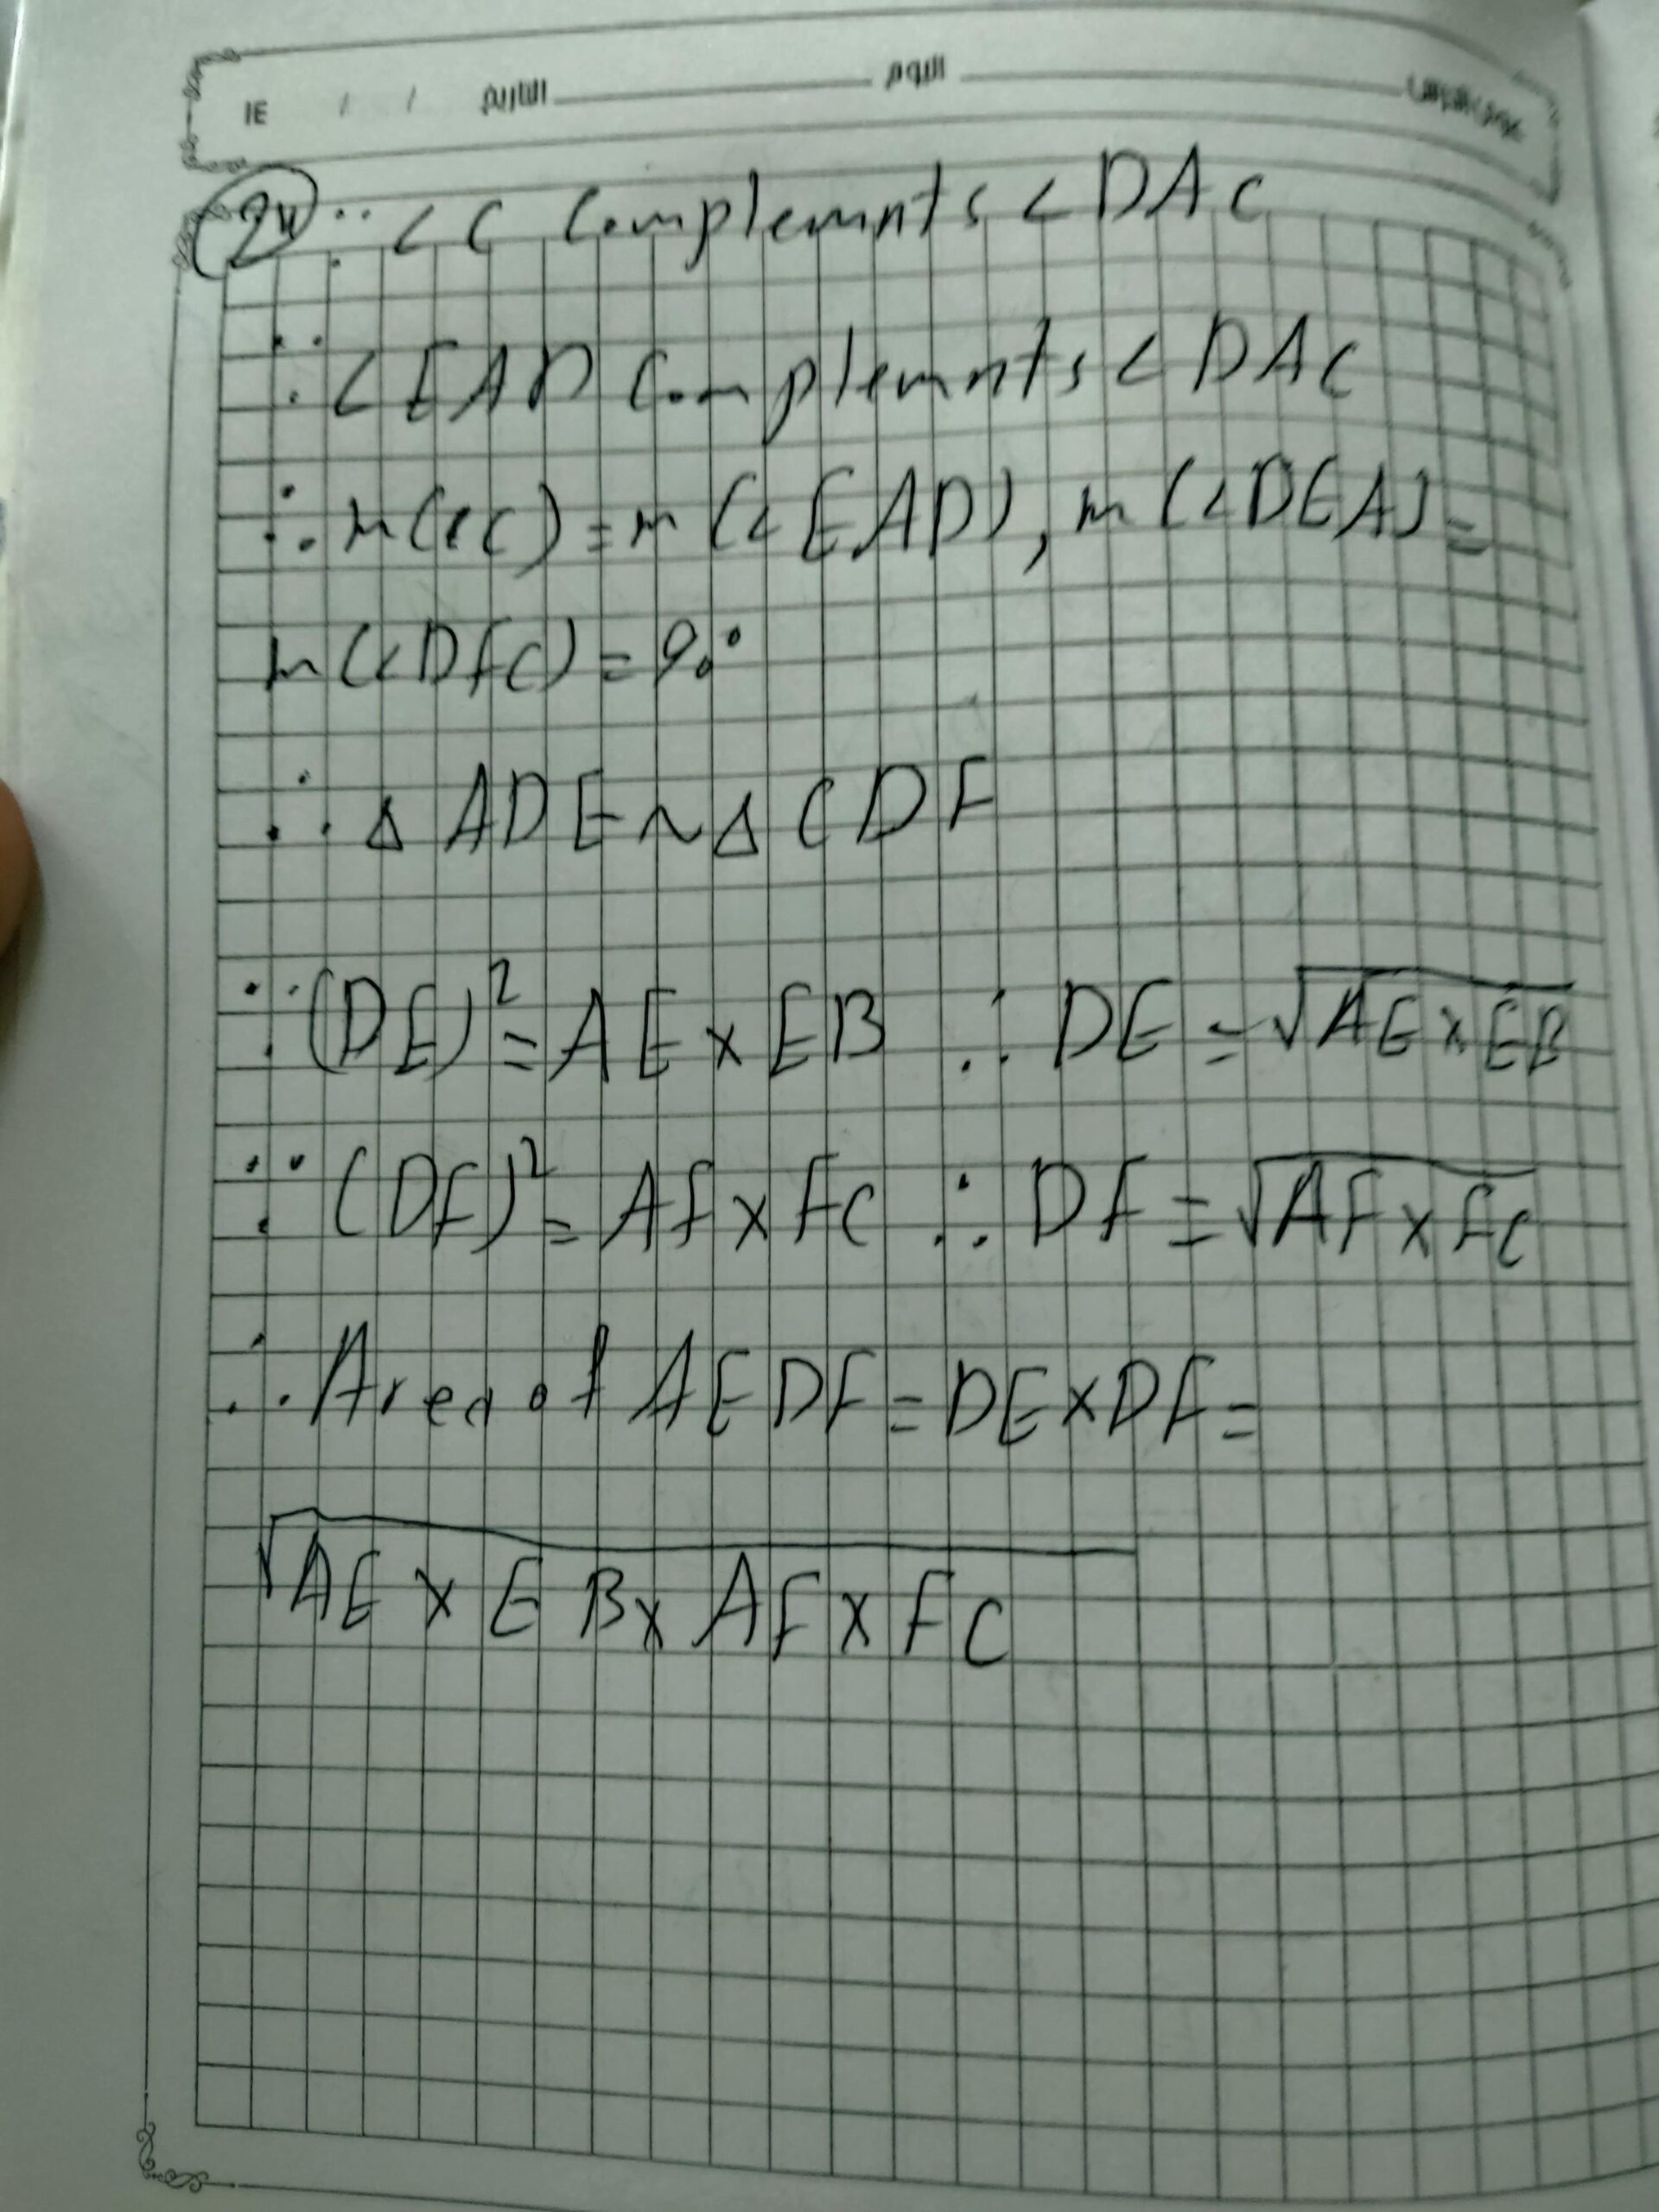 اليوم التاريخ / / ١٤
24 ∵ <C Complemnts <DAC
∵ <EAD Complemnts <DAC
∴ m(<C) = m(<EAD), m(<DEA) =
m(<DFC) = 90°
∴ Δ ADE ~ Δ CDF
∵ (DE)² = AE × EB ∴ DE = √AE × EB
∵ (DF)² = AF × FC ∴ DF = √AF × FC
∴ Area of AEDF = DE × DF =
√AE × EB × AF × FC